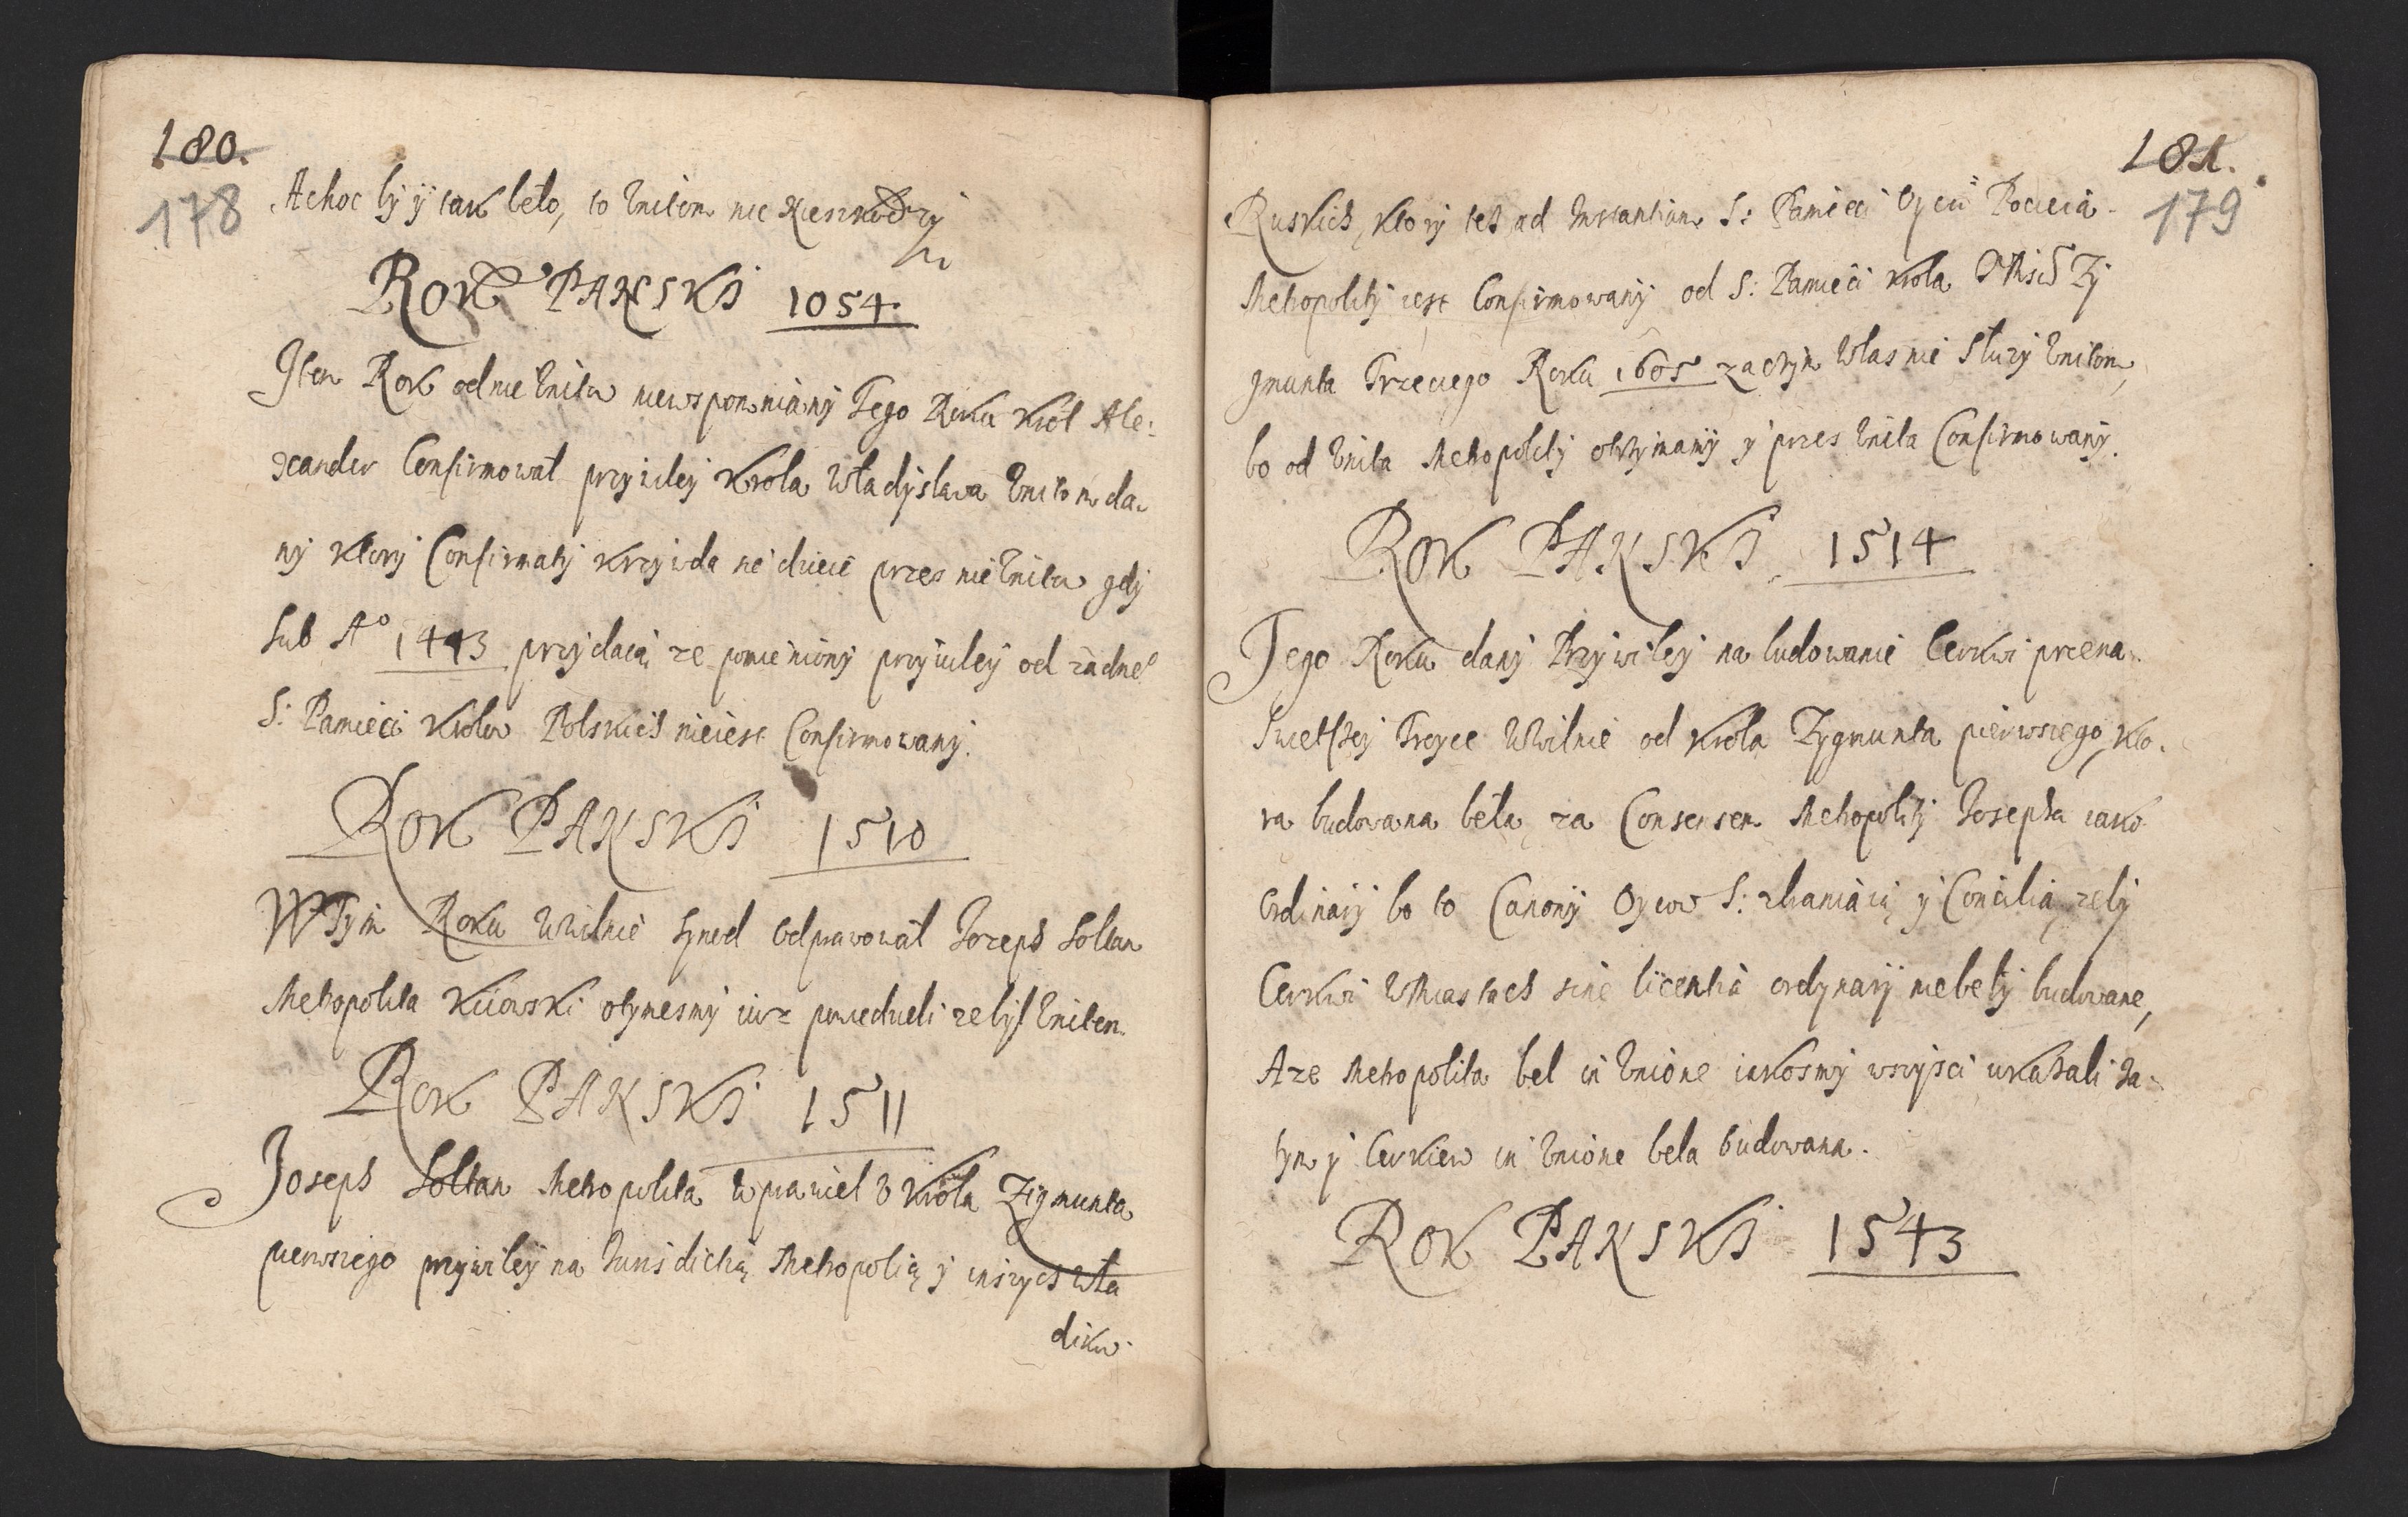 180.
178
A choc by y tak beło, to Unitom nic nieszkodzy
ROK PANSKI 1054.
I ten Rok od nie Unitow niewspomniàny Tego Roku Król Ale:
xander Confirmował przywiley Krola Władysława Unitom da-
ny ktory Confirmaty krzywda sie dzieie przes nie Unitow gdy
sub Aº 1443 przydaią ze pomieniony przywiley od żadne°
S: Pamięci Krolow Polskich nieiest Confirmowany.
ROK PANSKI 1510
W Tym Roku w Wilnie Synod odprawował Jozeph Soltan
Metropolita Kiiowski o tymesmy iuz powiedzieli ze był Uniten.
ROK PANSKI 1511
Joseph Soltan Metropolita Uprawiel U Króla Zigmunta
pierwszego przywiley na Jurisdictią Metropolią y inszych Wła
dikw.
181.
179
Ruskich, ktory tes ad Instantiam S: Pamięci Oyca Pocieia
Metropolity iest Confirmowany od S: Pamięci Krola JE° Msci Zy
gmunta Trzeciego Roku 1605 zaczym Własnie słuzy Unitom,
bo od Unita Metropolity otrzymany y przes Unita Confirmowany.
ROK PANSKI 1514
Tego Roku dany Przywiley na budowanie Cerkwi przena-
swietszey Troyce w Wilnie od Króla Zygmunta pierwszego, kto-
ra budowana beła za Consensem Metropolity Josepha iako
Ordinarij bo to Canony Oycow S: zbraniàią y Concilia, zeby
Cerkwi w Miastach sine licentia ordynarij niebeły budowane,
A ze Metropolita bel in Unione iakosmy wszysci ukazali za-
tym y Cerkiew in Unione beła budowana.
ROK PANSKI 1543